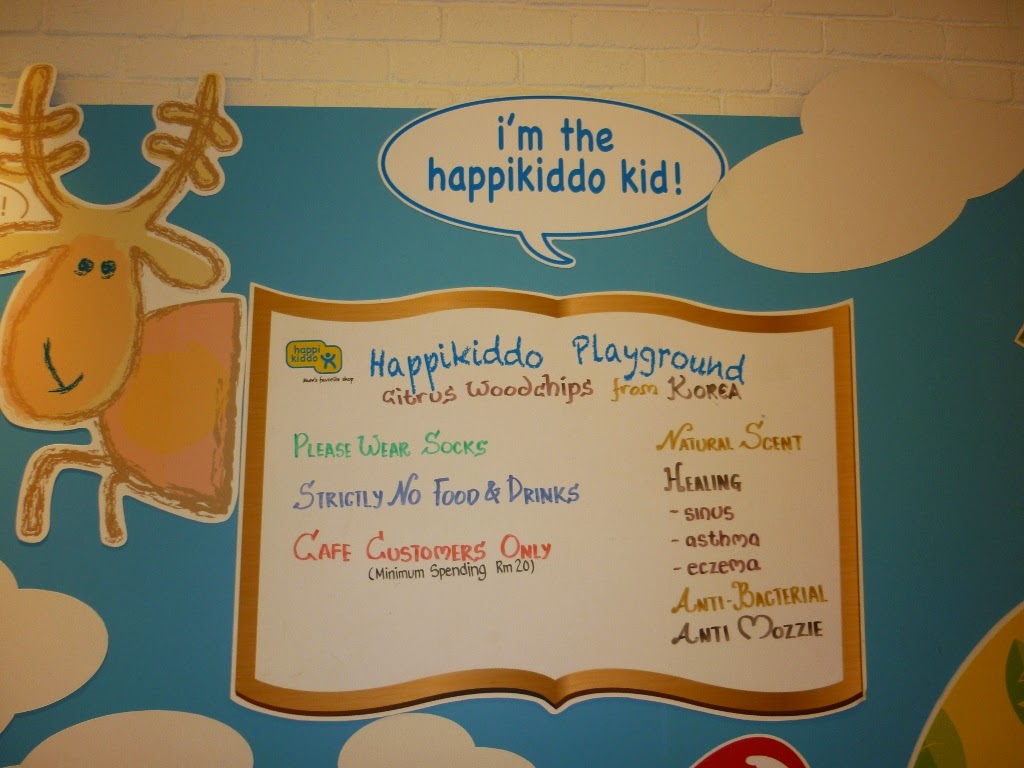 i'm the
happikiddo kid!
!
happi
kiddo
Mum's favorite shop
Happikiddo Playground
Citrus Woodchips from Korea
Please Wear Socks
Strictly No Food & Drinks
Cafe Customers Only
(Minimum Spending Rm 20)
Natural Scent
Healing
- sinus
- asthma
- eczema
Anti-Bacterial
Anti Mozzie